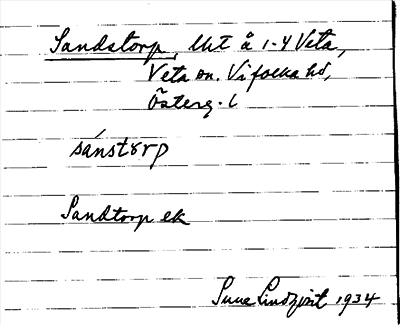 Sandstorp, Utt å 1-4 Veta,
Veta sn. Vifolka hd,
Österg. l
sánstôrp
Sandtorp ek
Sune Lindqvist 1934